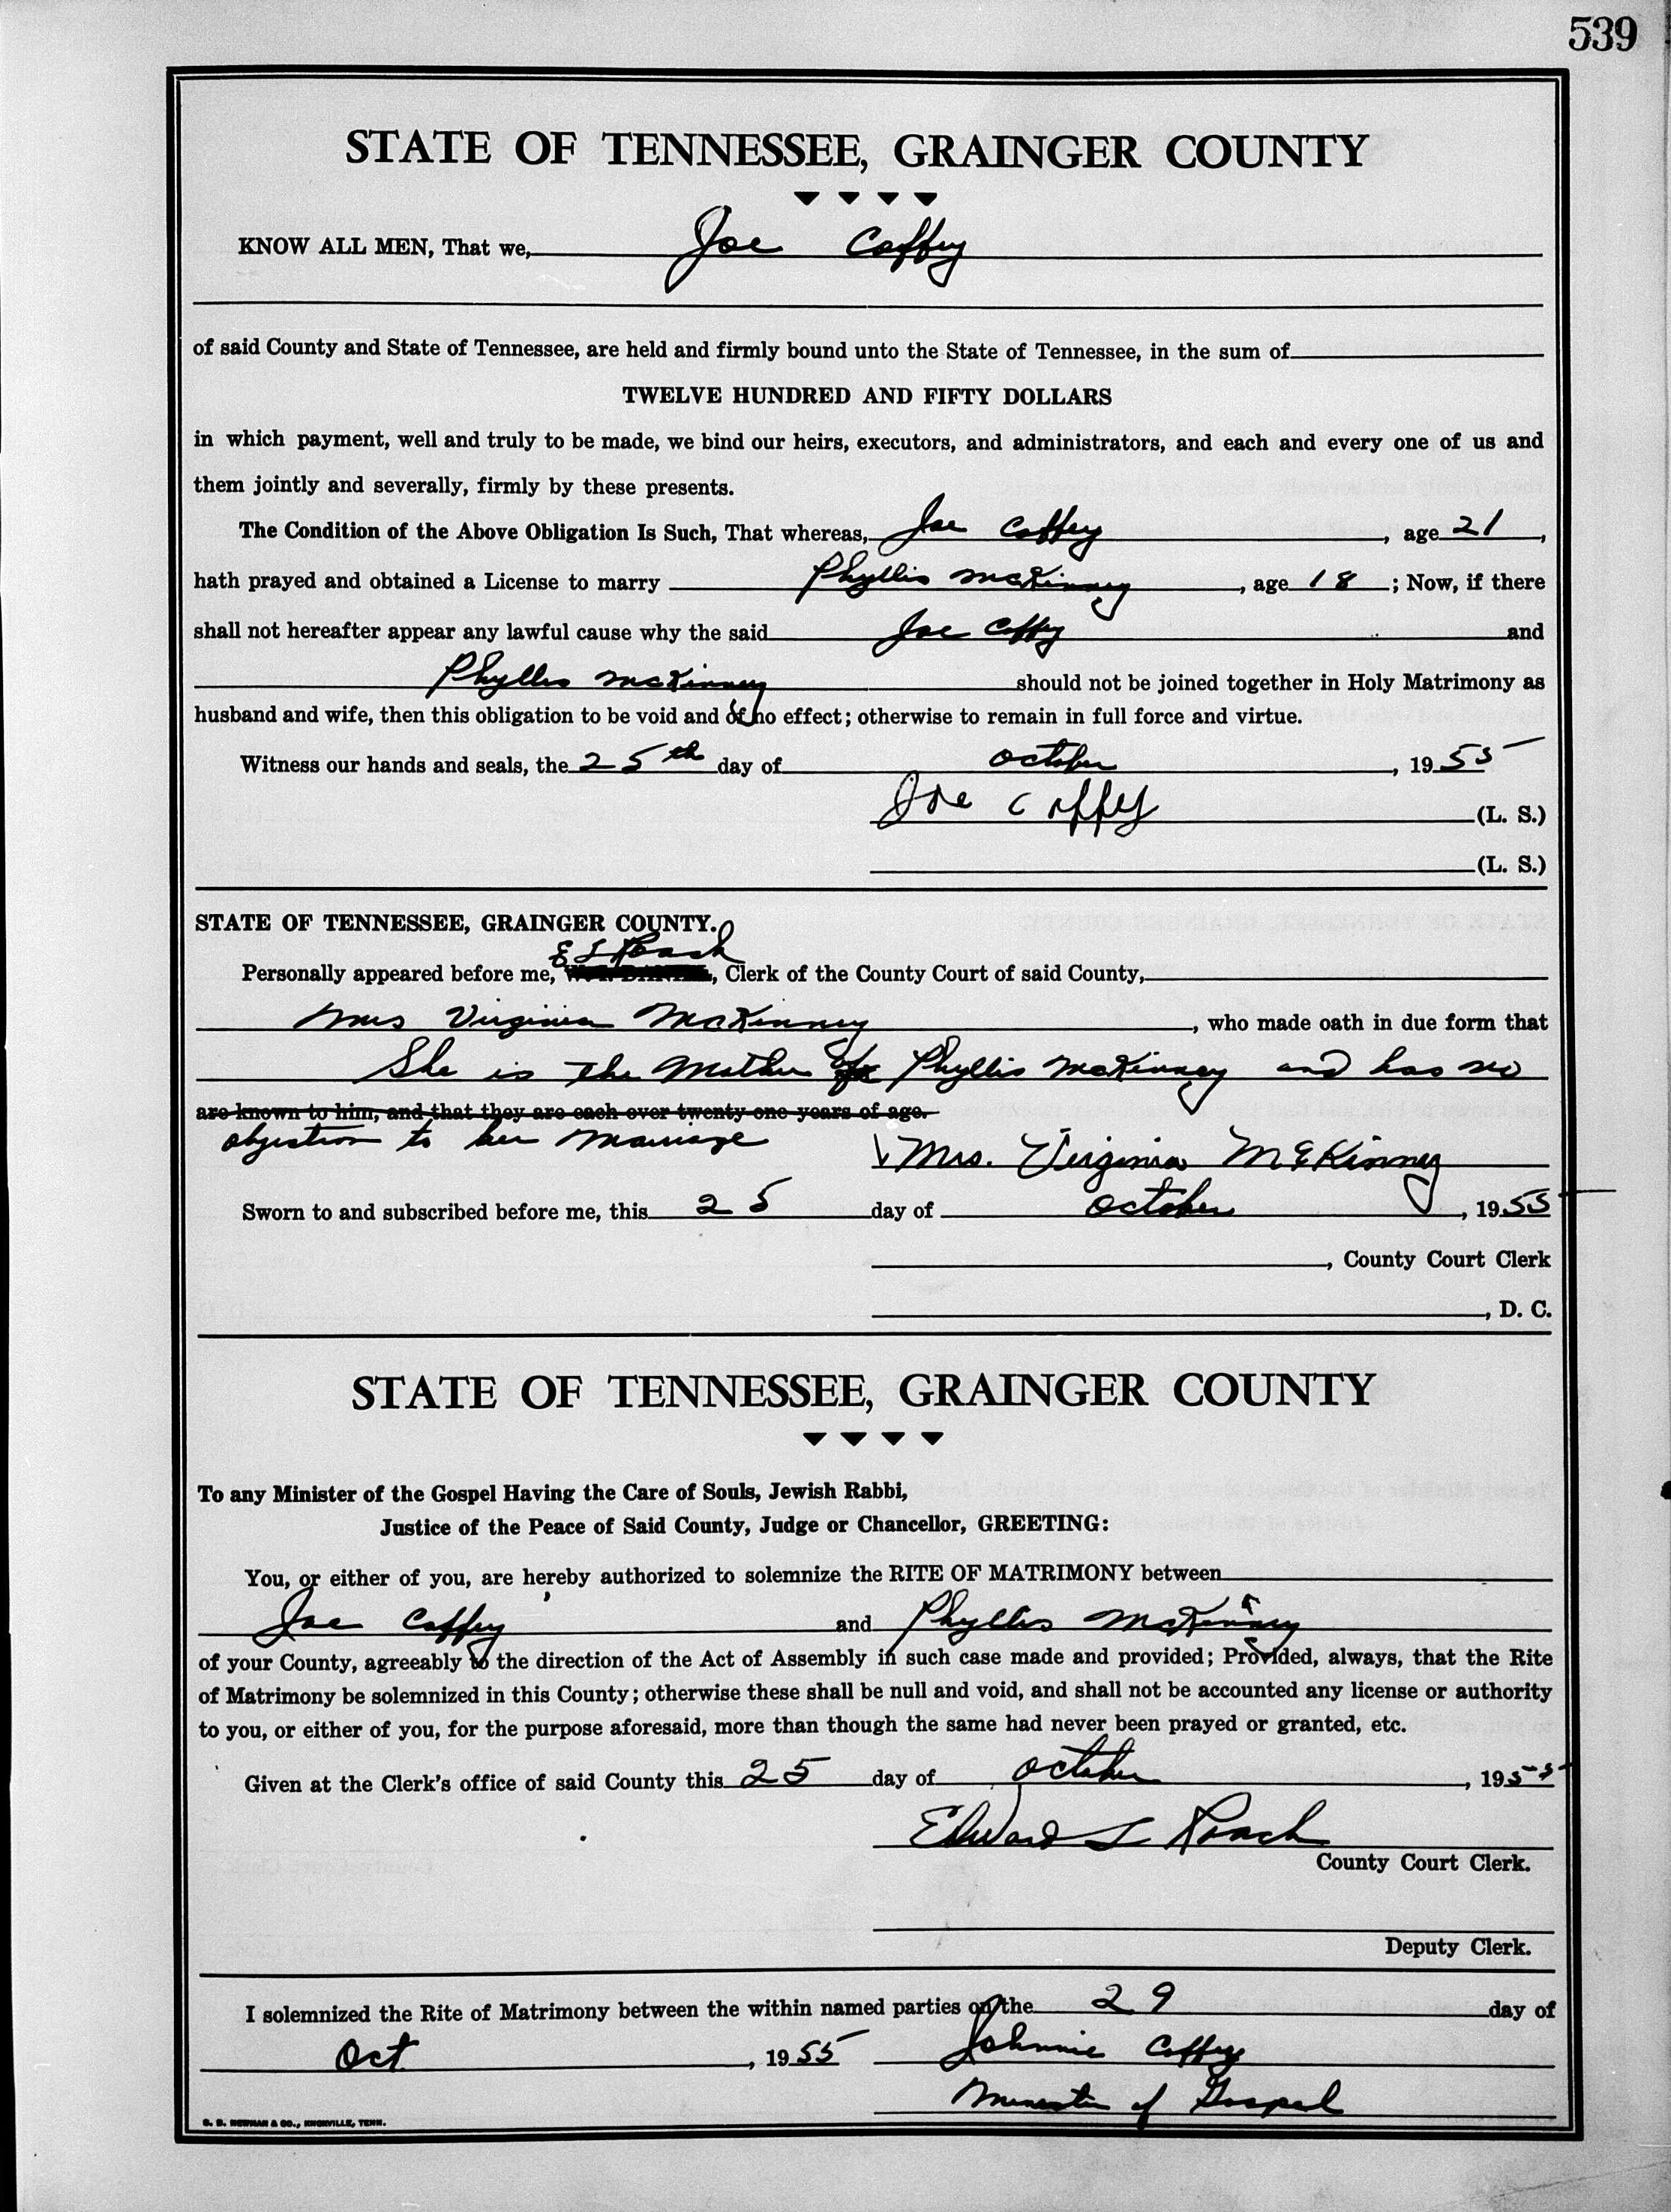 539
STATE OF TENNESSEE, GRAINGER COUNTY
KNOW ALL MEN, That we, Joe Coffey
of said County and State of Tennessee, are held and firmly bound unto the State of Tennessee, in the sum of
TWELVE HUNDRED AND FIFTY DOLLARS
in which payment, well and truly to be made, we bind our heirs, executors, and administrators, and each and every one of us and
them jointly and severally, firmly by these presents.
The Condition of the Above Obligation Is Such, That whereas, Joe Coffey, age 21,
hath prayed and obtained a License to marry Phyllis McKinney, age 18; Now, if there
shall not hereafter appear any lawful cause why the said Joe Coffey and
Phyllis McKinney should not be joined together in Holy Matrimony as
husband and wife, then this obligation to be void and of no effect; otherwise to remain in full force and virtue.
Witness our hands and seals, the 25th day of October, 1955
Joe Coffey (L. S.)
(L. S.)
STATE OF TENNESSEE, GRAINGER COUNTY.
E L Roach
Personally appeared before me, Clerk of the County Court of said County,
Mrs Virginia McKinney, who made oath in due form that
She is the Mother of Phyllis McKinney and has no
are known to him, and that they are each over twenty-one years of age.
objection to her Marriage
Mrs. Virginia McKinney
Sworn to and subscribed before me, this 25 day of October, 1955
, County Court Clerk
, D. C.
STATE OF TENNESSEE, GRAINGER COUNTY
To any Minister of the Gospel Having the Care of Souls, Jewish Rabbi,
Justice of the Peace of Said County, Judge or Chancellor, GREETING:
You, or either of you, are hereby authorized to solemnize the RITE OF MATRIMONY between
Joe Coffey and Phyllis McKinney
of your County, agreeably to the direction of the Act of Assembly in such case made and provided; Provided, always, that the Rite
of Matrimony be solemnized in this County; otherwise these shall be null and void, and shall not be accounted any license or authority
to you, or either of you, for the purpose aforesaid, more than though the same had never been prayed or granted, etc.
Given at the Clerk's office of said County this 25 day of October, 1955
Edward L Roach
County Court Clerk.
Deputy Clerk.
I solemnized the Rite of Matrimony between the within named parties on the 29 day of
Oct, 1955 Johnnie Coffey
Minister of Gospel
S. B. NEWMAN & CO., KNOXVILLE, TENN.